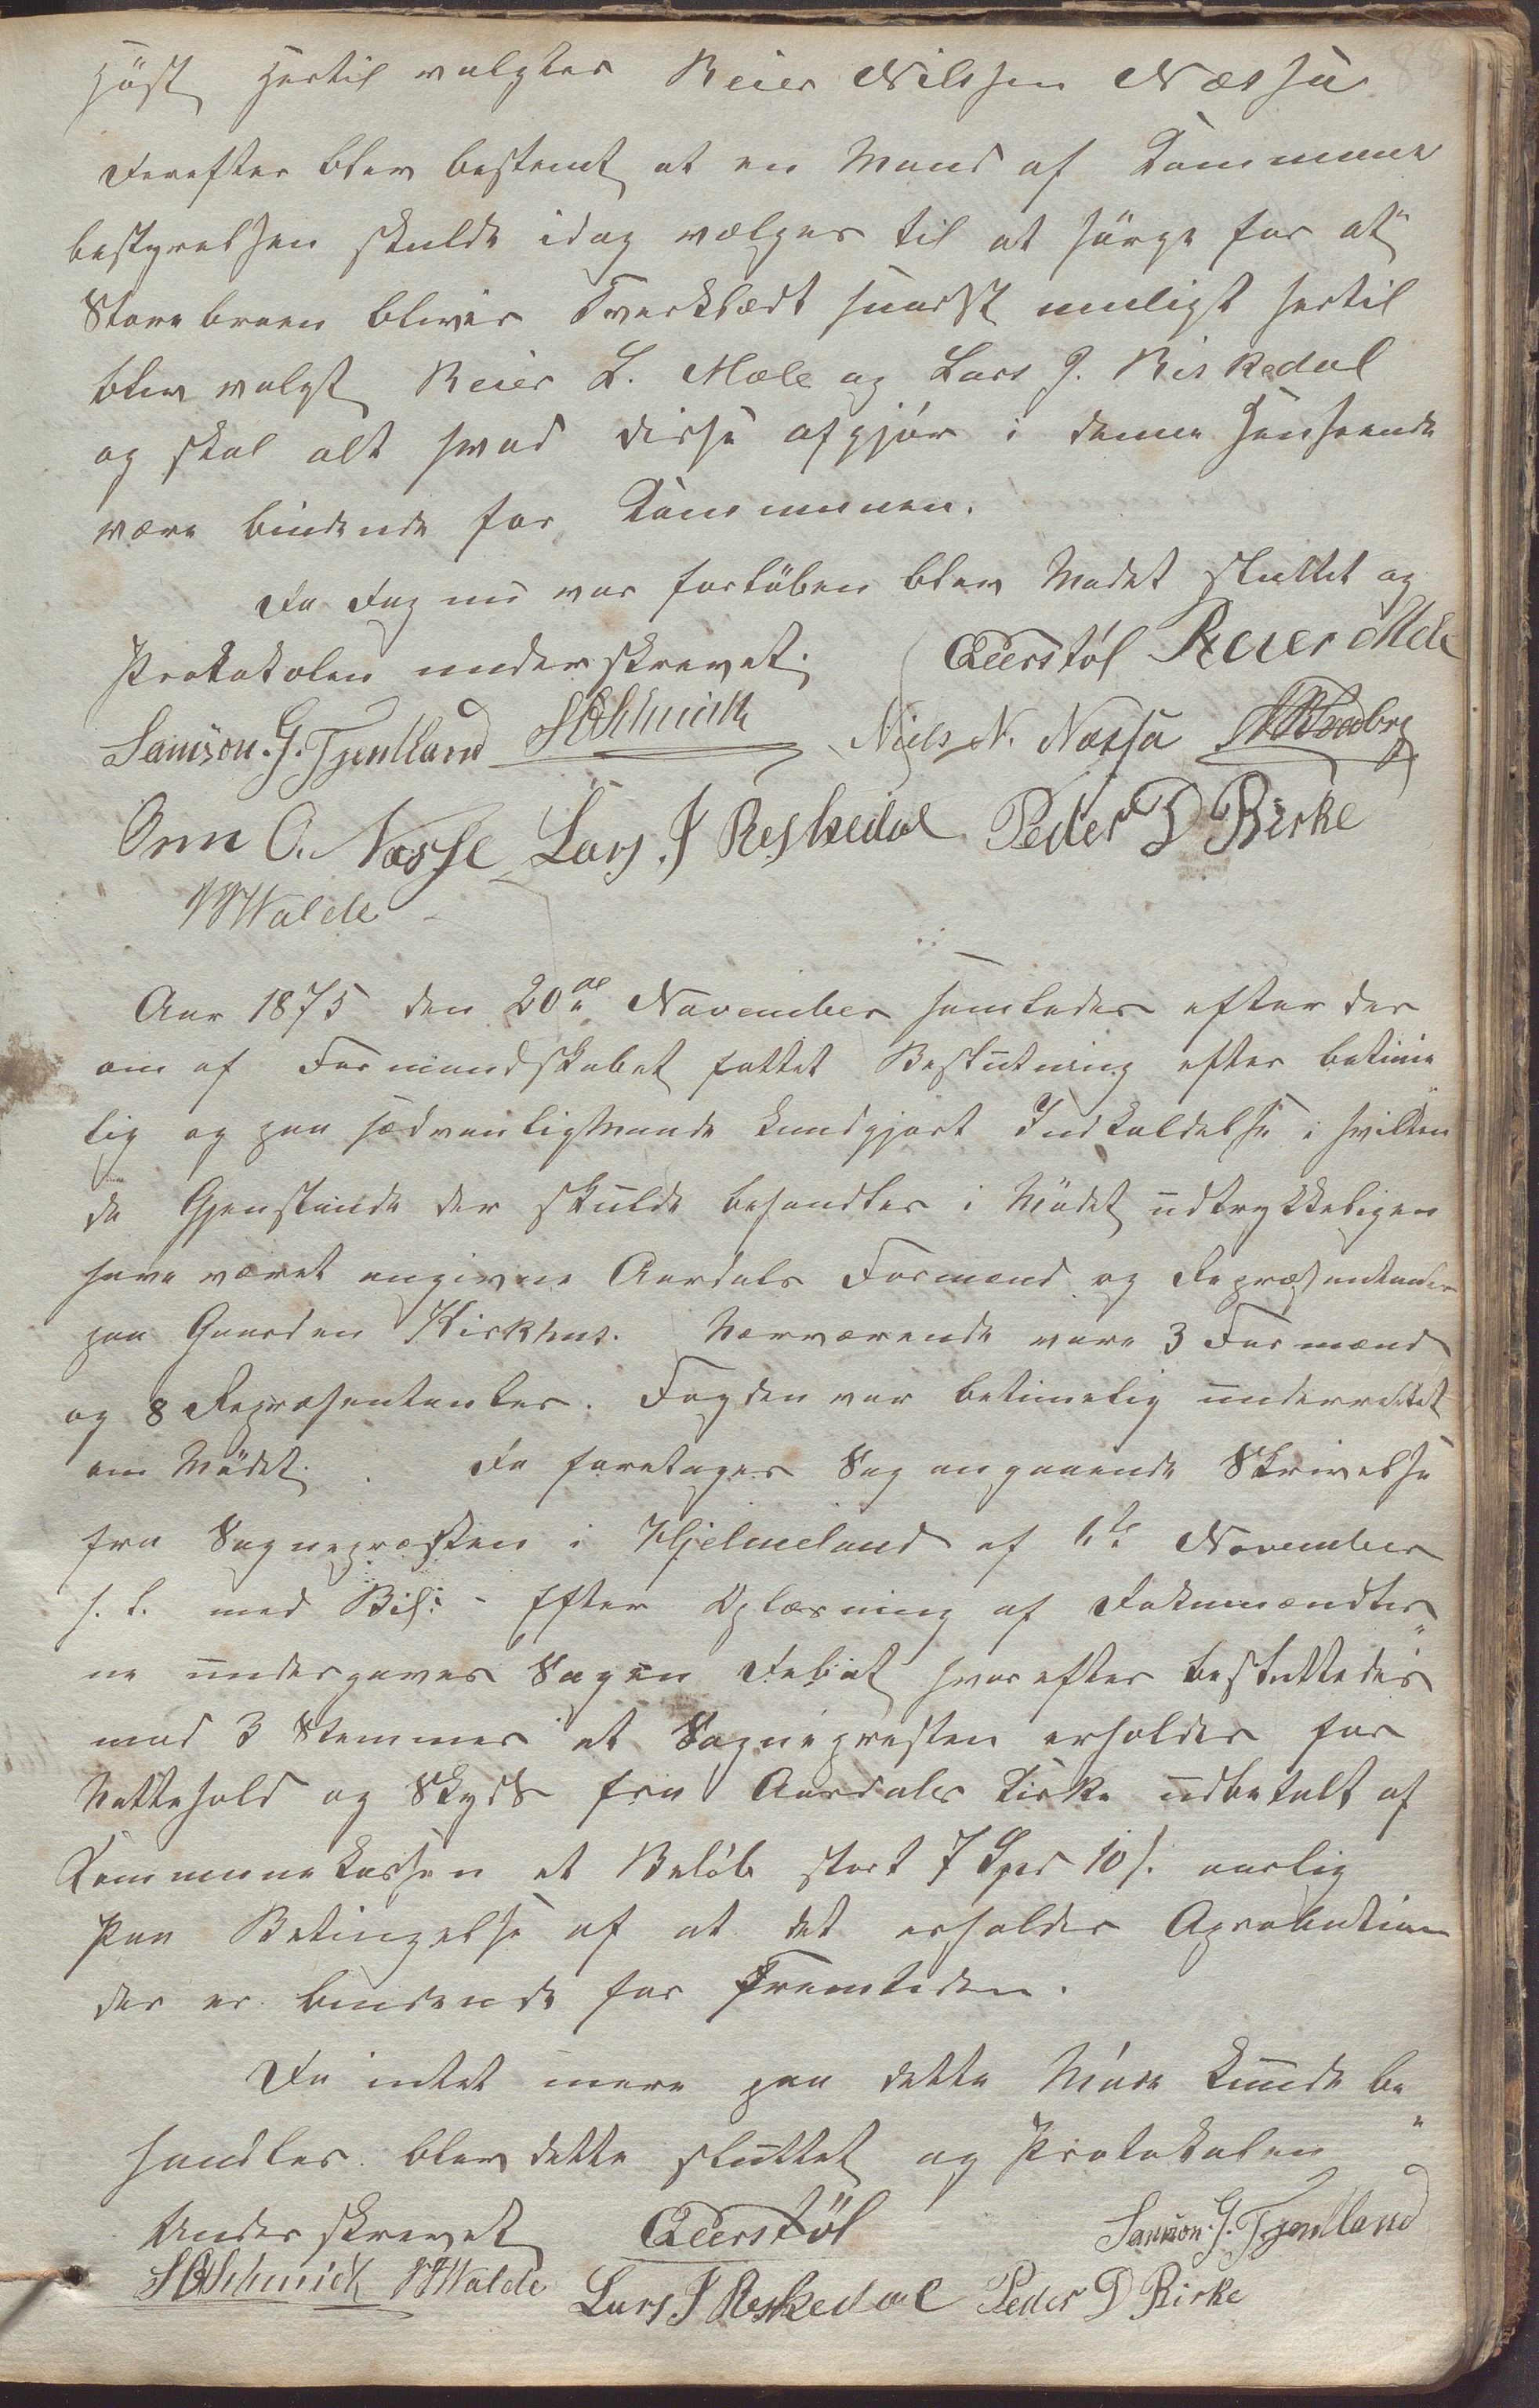 Höst hertil valgtes Reier Nilssen Næssa
Derefter blev bestemt at en Mand af Kommune
bestyrelsen skulde idag vælges til at sörge for at
Storebroen bliver Tverklædt snarest muligt hertil
blev valgt Reier L. Mæle og Lars J. Riskedal
og skal alt hvad disse afgjör i denne Henseende
være bindende for Kommunen.
Da Dag nu var forlöben blev Mödet sluttet og
Protokolen underskrevet.
Qverstöl Reier Mele
Samson. G. Tjentland SASchmidt Niels N. Næssa
Onn O. Næsse Lars. J Reskedal Peder D Birke
Walde
Aar 1875 den 20de November samledes efter der
om af Formandskabet fattet Beslutning efter betime
lig og paa sædvanlig Maade kundgjort Indkaldelse i hvilken
de Gjenstande der skulde behandles i Mödet udtrykkeligen
have været angivne Aardals Formænd og Repræsentanter
paa Gaarden Kirkhus. Nærværende vare 3 Formænd
og 8 Repræsentanter. Fogden var betimelig underrettet
om Mödet. Da foretages Sag angaaende Skrivelse
fra Sognepræsten i Hjelmeland af 6te November
h. t. med Bil: - Efter Oplæsning af Dokumændter„
ne undergaves Sagen Debat hvorefter besluttedes
mod 3 Stemmer at Sognepresten erholder for
Nattehold og Skyds fra Aardals Kirke udbetalt af
Kommunekassen et Belöb stort 7 Spd 10 s. aarlig
Paa Betingelse af at det erholder Aprobation
der er bindende for Fremtiden.
Da intet mere paa dette Möde kunde be„
handles blev dette sluttet og Protokolen
Underskrevet Qverstöl Samson. G. Tjentland
SASchmidt Walde Lars J Reskedal Peder D Birke